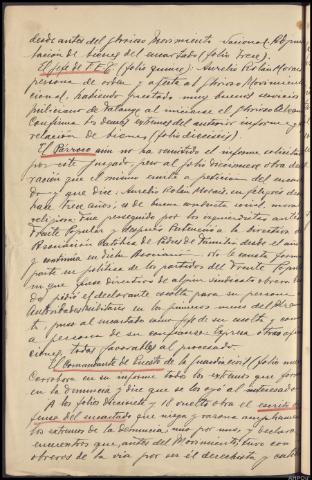 desde antes del Glorioso Movimiento Nacional. Adjunta
tación de bienes del encartado (folio trece).
El Jefe de F.E.T. (folio quince): Aurelio Rolán Morais
persona de orden y afecta al Glorioso Movimiento
cional, habiendo prestado muy buenos servicios
publicación de Falange al iniciarse el Glorioso
Confirma los demás extremos del anterior informe y
relación de bienes (folio dieciseis).
El Párroco aun no ha remitido el informe solicitado
por este Juzgado, pero al folio diecinueve obra
ración que el mismo emite a petición del
do y que dice: Aurelio Rolán Morais, mi feligrés
hace trece años, es de buena conducta social, moral
religiosa. Fue perseguido por los izquierdistas antes
Frente Popular y después perteneció a la directiva de
Asociación Católica de Padres de Familia desde el
y continúa en dicha Asociación. No le consta
parte en política de los partidos del Frente
ni que fuese directivo de algún Sindicato obrero.
do pidió el declarante escolta para su persona
Autoridades Militares en los primeros meses del
to, puso al encartado como jefe de su escolta y
a persona de su confianza. Expresa otras
ciones todas favorables al procesado.
El Comandante de Puesto de la Guardia Civil (folio
Corrobora en su informe todos los extremos que
en la denuncia y dice que se los oyó al
A los folios diecisiete y 18 vuelto obra el escrito
fensa del encartado que niega y razona ampliamente
los extremos de la denuncia uno por uno, y declara
encuentros que, antes del Movimiento, tuvo con
obreros de la vía por ser él derechista y